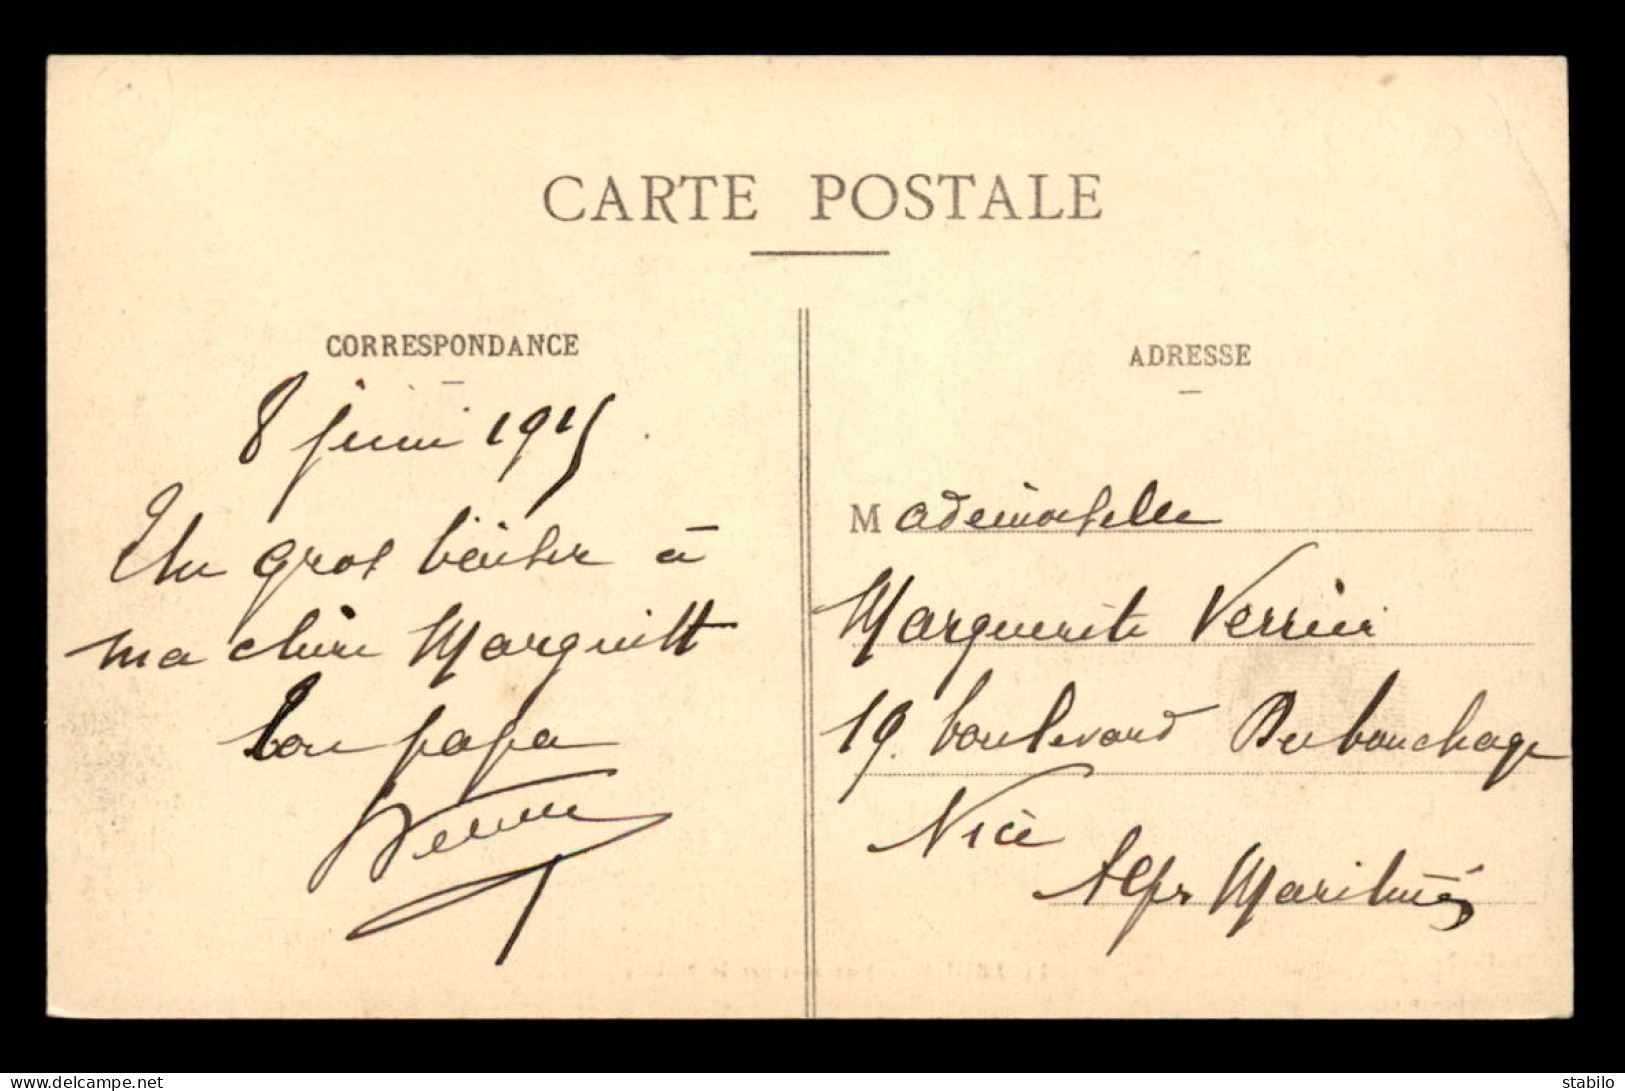 CARTE POSTALE
CORRESPONDANCE
8 juin 1915
Un gros baiser à
ma chère Marguitt
ton papa
Verrier
ADRESSE
Mademoiselle
Marguerite Verrier
19 boulevard Dubouchage
Nice
Alpes Maritimes
delcampe.net
stabilo